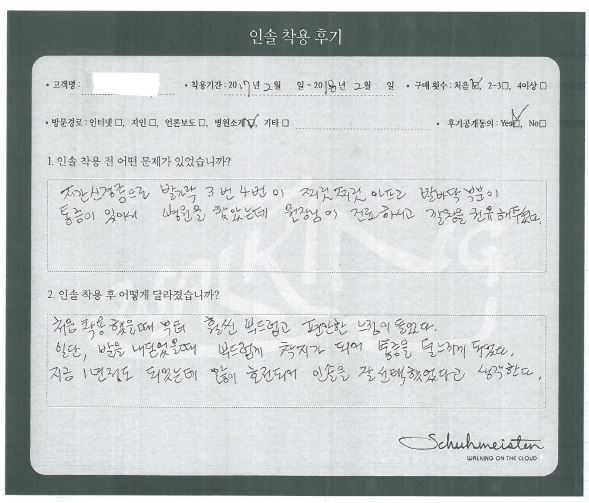 인솔 착용 후기
• 고객명 : • 착용기간 : 2017년 2월 일 ~ 2018년 2월 일 • 구매 횟수 : 처음☑, 2~3□, 4이상□
• 방문경로 : 인터넷□, 지인□, 언론보도□, 병원소개☑, 기타□ • 후기공개동의 : Yes☑, No□
1. 인솔 착용 전 어떤 문제가 있었습니까?
지간신경종으로 발가락 3번 4번이 찌릿찌릿 아프고 발바닥 부분이
통증이 있어서 병원을 찾았는데 원장님이 진료하시고 깔창을 권유해주셨다.
2. 인솔 착용 후 어떻게 달라졌습니까?
처음 착용했을때 부터 훨씬 부드럽고 편안한 느낌이 들었다.
일단, 발을 내딛었을때 부드럽게 착지가 되어 통증을 덜 느끼게 되었다.
지금 1년정도 되었는데 많이 호전되어 인솔을 잘 선택했었다고 생각한다.
Schuhmeister
WALKING ON THE CLOUD